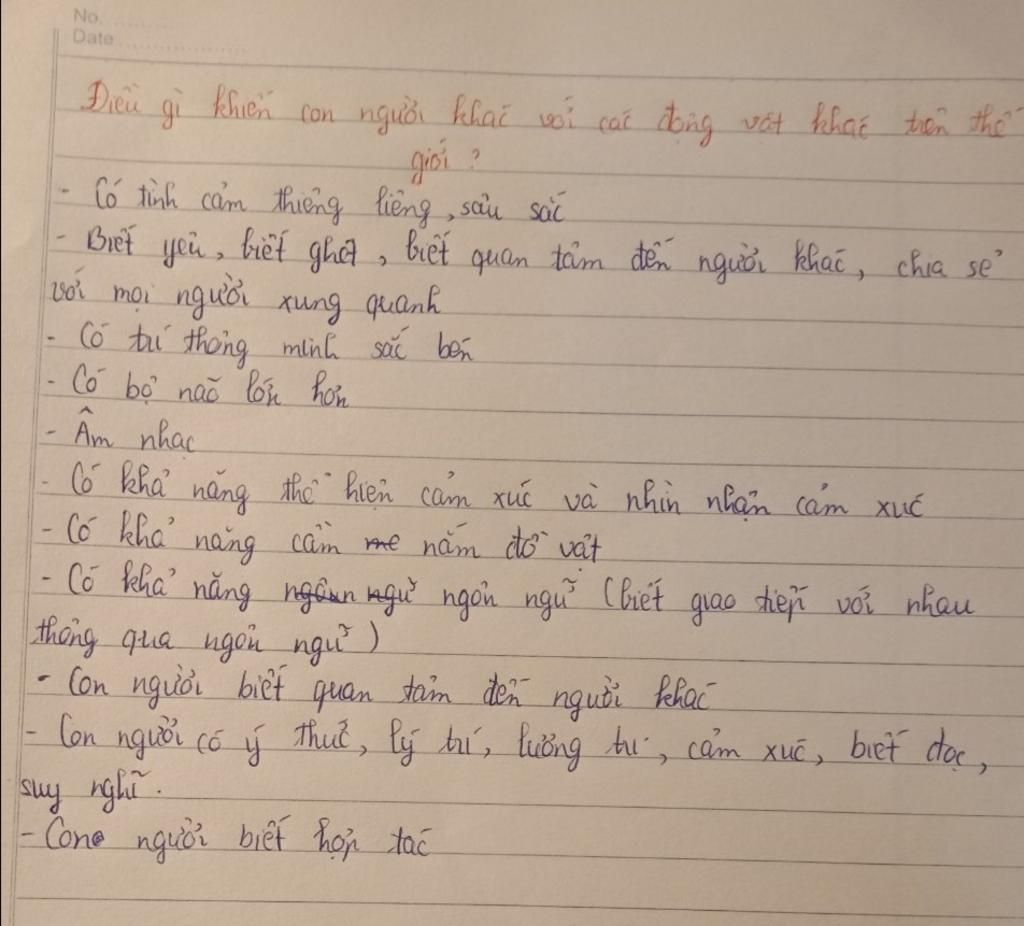 No.
Date
Điều gì khiến con người khác với các động vật khác trên thế
giới ?
- Có tình cảm thiêng liêng, sâu sắc
- Biết yêu, biết ghét, biết quan tâm đến người khác, chia sẻ
với mọi người xung quanh
- Có trí thông minh sắc bén
- Có bộ não lớn hơn
- Âm nhạc
- Có khả năng thể hiện cảm xúc và nhìn nhận cảm xúc
- Có khả năng cầm nắm đồ vật
- Có khả năng ngôn ngữ (biết giao tiếp với nhau
thông qua ngôn ngữ)
- Con người biết quan tâm đến người khác
- Con người có ý thức, lý trí, lương tri, cảm xúc, biết đọc,
suy nghĩ.
- Con người biết hợp tác